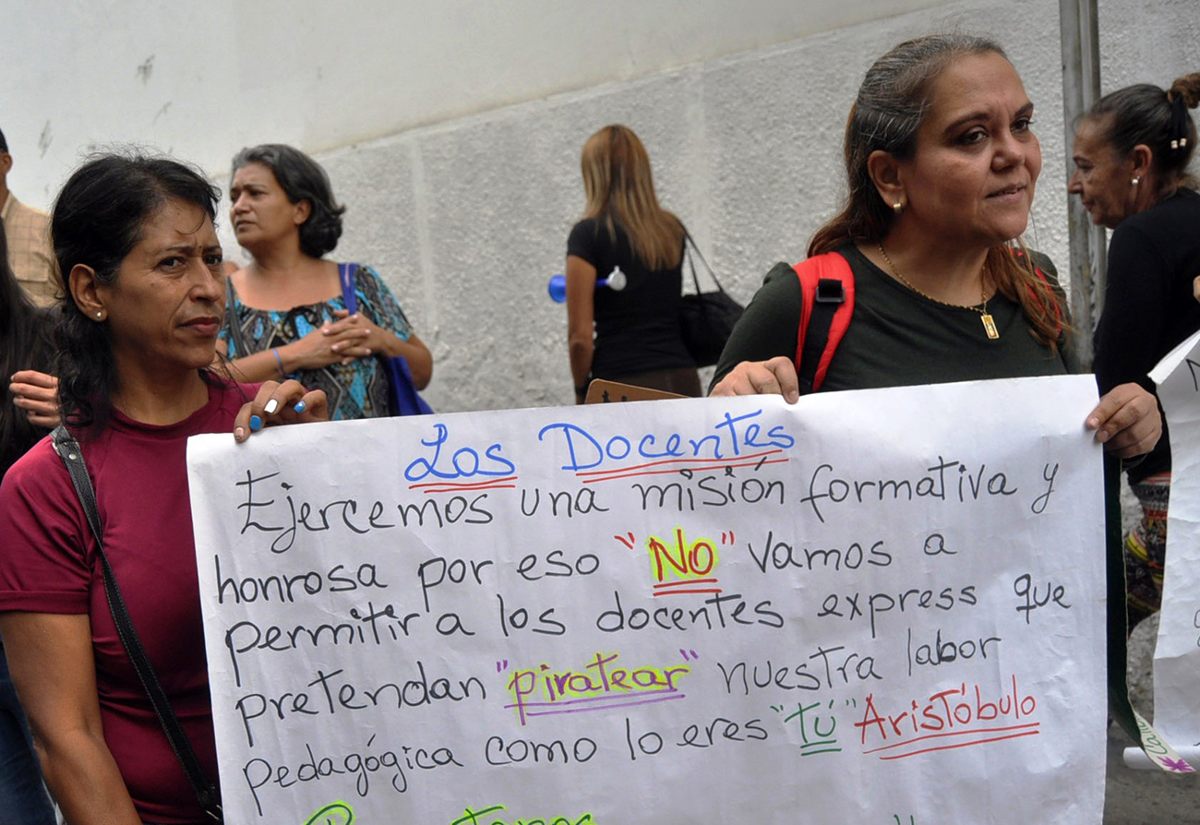 Los Docentes
Ejercemos una misión formativa y
honrosa por eso "No" vamos a
permitir a los docentes express que
pretendan "piratear" nuestra labor
pedagógica como lo eres "tú" Aristóbulo